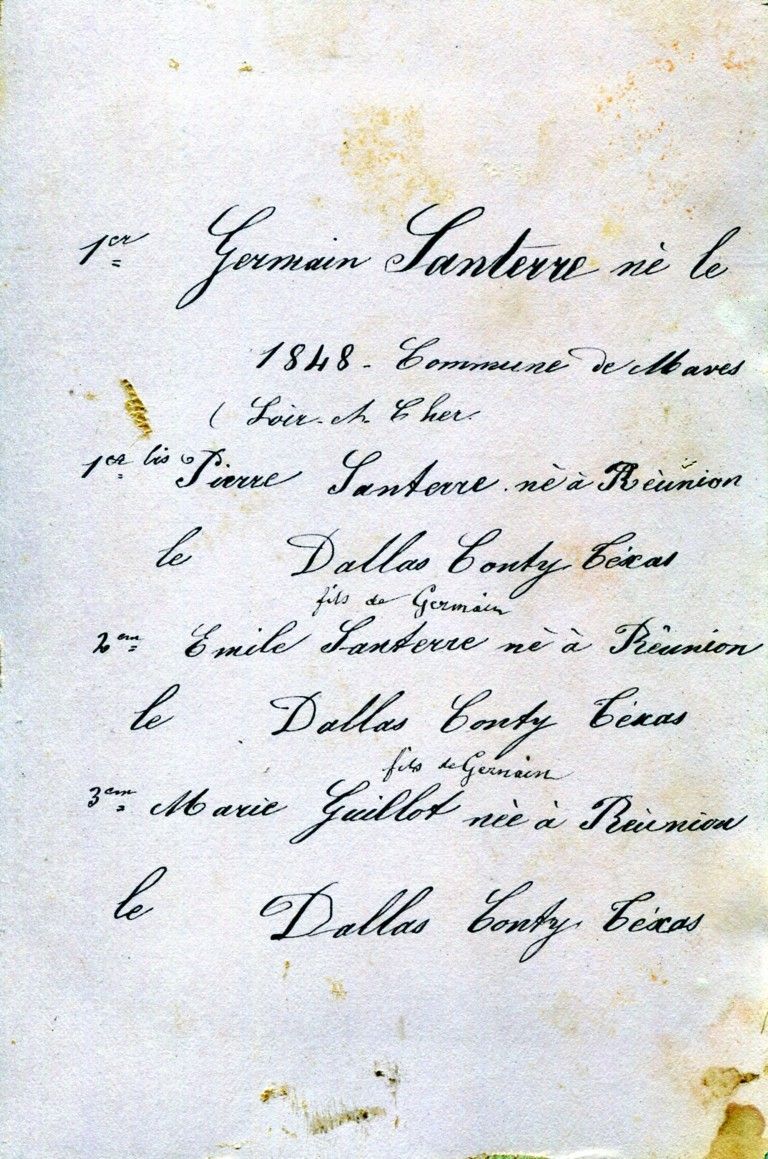 1er Germain Santerre nè le
1848 - Commune de Maves
( Loir-et-Cher.
1er bis Pierre Santerre. nè à Rèunion
le Dallas Conty Téxas
fils de Germain
2em Emile Santerre nè à Rèunion
le Dallas Conty Téxas
fils de Germain
3em Marie Guillot nèe à Rèunion
le Dallas Conty Téxas